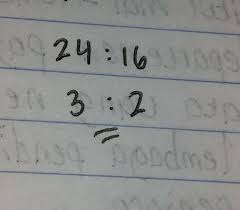 24 : 16
3 : 2